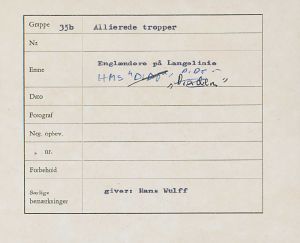 Gruppe 35b Allierede tropper
Nr.
Emne Englændere på Langelinie
HMS "Dido" "Dido"
Dato
Fotograf
Neg. opbev.
" nr.
Forbehold
Særlige bemærkninger giver: Hans Wulff